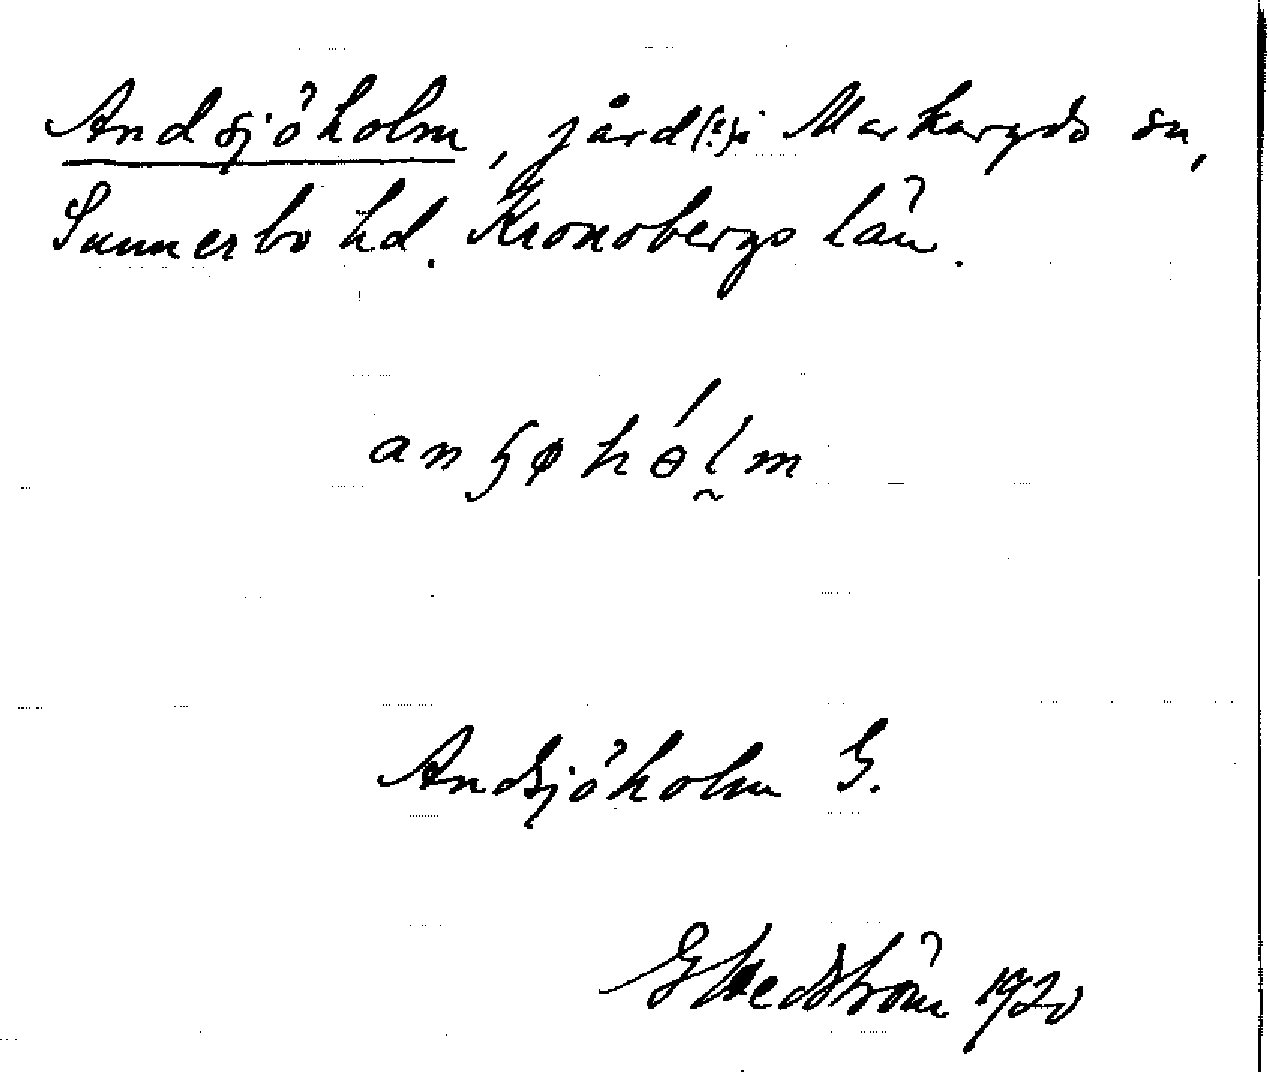 Andsjöholm, gård(?) i Markaryds sn,
Sunnerbo hd. Kronobergs län.
Andsjöholm G.
G Hedström 1920